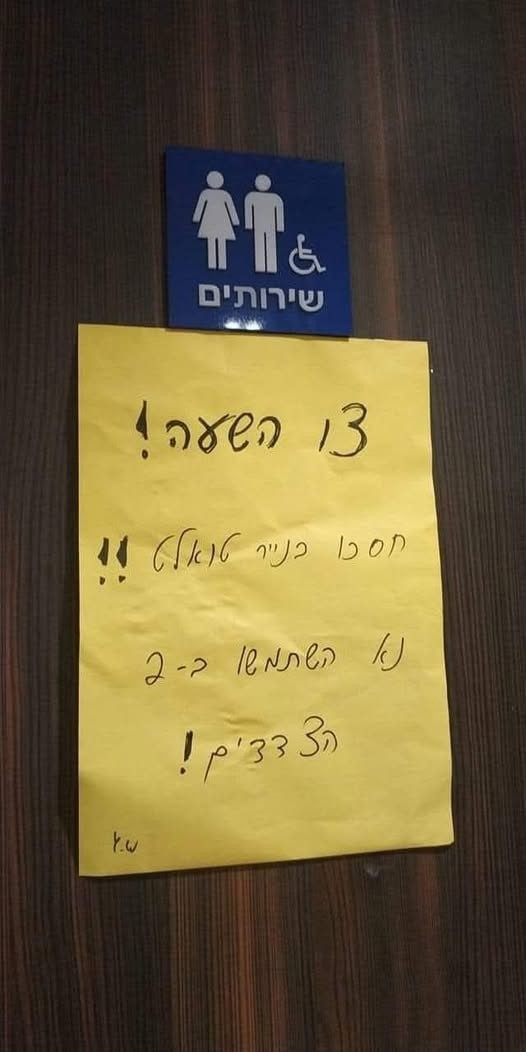 שירותים
צו השעה!
חסכו בנייר טואלט!!
נא השתמשו ב-2
הצדדים!